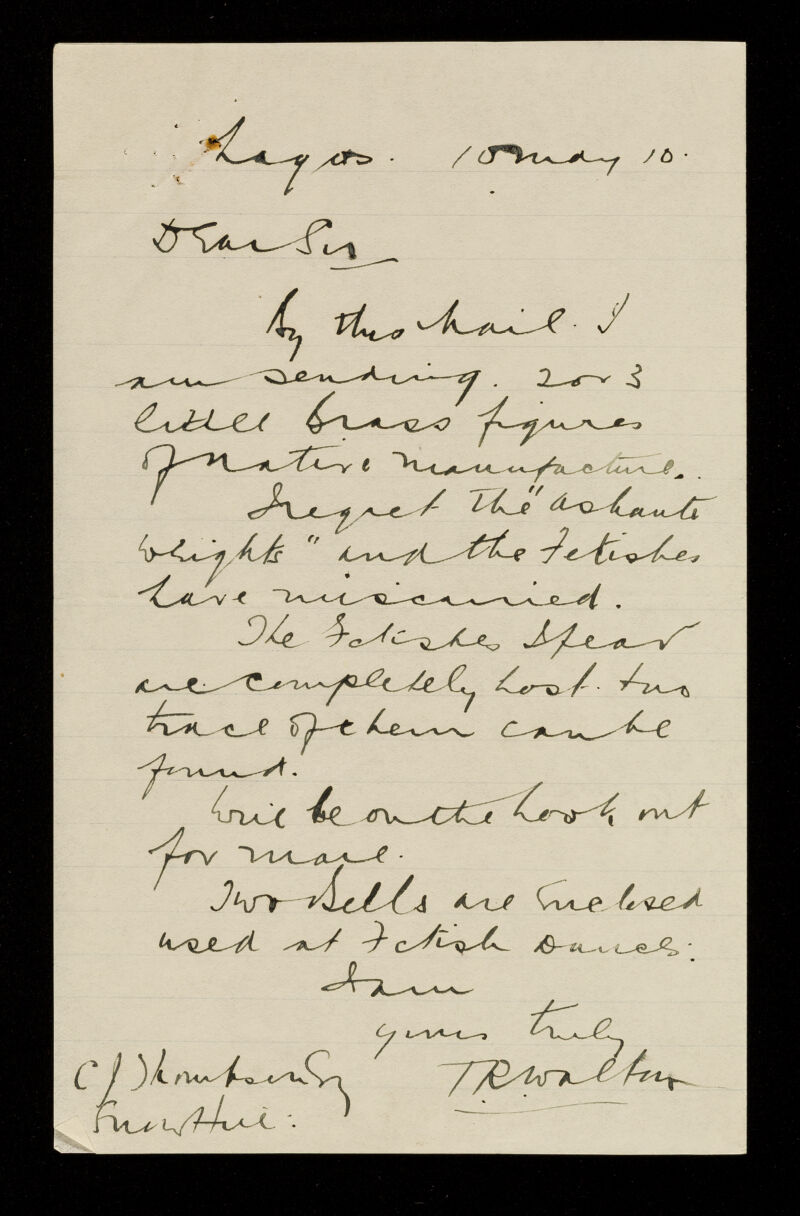 Lagos. 10 May 10.
Dear Sir
By this Mail. I
am sending. 2 or 3
little brass figures
of native manufacture.
I regret the "Ashanti
Weights" and the Fetishes
have miscarried.
The Fetishes I fear
are completely lost. & no
trace of them can be
found.
Will be on the look out
for more.
Two Bells are Enclosed
used at Fetish Dances.
I am
yours truly
T.R. Walton
C J Thompson Esq
Snow Hill.